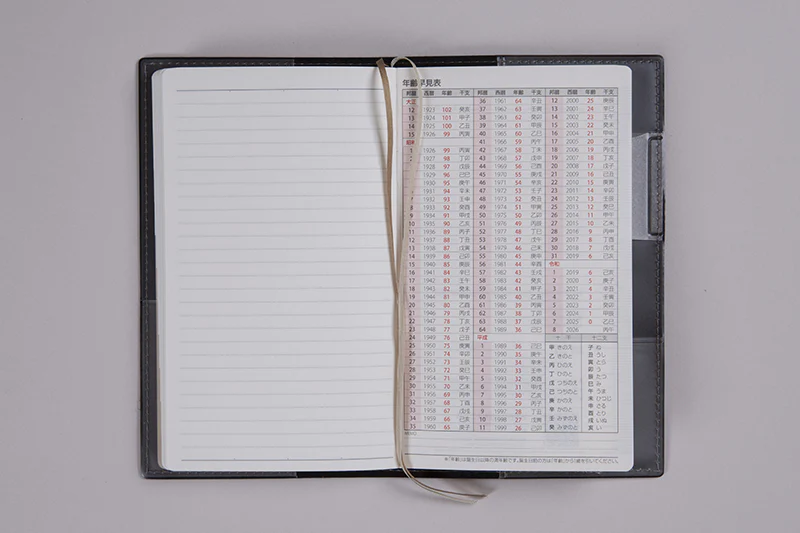 年齢早見表
邦暦 西暦 年齢 干支
大正
12 1923 102 癸亥
13 1924 101 甲子
14 1925 100 乙丑
15 1926 99 丙寅
昭和
1926 99 丙寅
1927 98 丁卯
1928 97 戊辰
1929 96 己巳
1930 95 庚午
1931 94 辛未
7 1932 93 壬申
8 1933 92 癸酉
9 1934 91 甲戌
10 1935 90 乙亥
11 1936 89 丙子
12 1937 88 丁丑
13 1938 87 戊寅
14 1939 86 己卯
15 1940 85 庚辰
16 1941 84 辛巳
17 1942 83 壬午
18 1943 82 癸未
19 1944 81 甲申
20 1945 80 乙酉
21 1946 79 丙戌
22 1947 78 丁亥
23 1948 77 戊子
24 1949 76 己丑
25 1950 75 庚寅
26 1951 74 辛卯
27 1952 73 壬辰
28 1953 72 癸巳
29 1954 71 甲午
30 1955 70 乙未
31 1956 69 丙申
32 1957 68 丁酉
33 1958 67 戊戌
34 1959 66 己亥
35 1960 65 庚子
邦暦 西暦 年齢 干支
36 1961 64 辛丑
37 1962 63 壬寅
38 1963 62 癸卯
39 1964 61 甲辰
40 1965 60 乙巳
41 1966 59 丙午
42 1967 58 丁未
43 1968 57 戊申
44 1969 56 己酉
45 1970 55 庚戌
46 1971 54 辛亥
47 1972 53 壬子
48 1973 52 癸丑
49 1974 51 甲寅
50 1975 50 乙卯
51 1976 49 丙辰
52 1977 48 丁巳
53 1978 47 戊午
54 1979 46 己未
55 1980 45 庚申
56 1981 44 辛酉
57 1982 43 壬戌
58 1983 42 癸亥
59 1984 41 甲子
60 1985 40 乙丑
61 1986 39 丙寅
62 1987 38 丁卯
63 1988 37 戊辰
64 1989 36 己巳
平成
1 1989 36 己巳
2 1990 35 庚午
3 1991 34 辛未
4 1992 33 壬申
5 1993 32 癸酉
6 1994 31 甲戌
7 1995 30 乙亥
8 1996 29 丙子
9 1997 28 丁丑
10 1998 27 戊寅
11 1999 26 己卯
邦暦 西暦 年齢 干支
12 2000 25 庚辰
13 2001 24 辛巳
14 2002 23 壬午
15 2003 22 癸未
16 2004 21 甲申
17 2005 20 乙酉
18 2006 19 丙戌
19 2007 18 丁亥
20 2008 17 戊子
21 2009 16 己丑
22 2010 15 庚寅
23 2011 14 辛卯
24 2012 13 壬辰
25 2013 12 癸巳
26 2014 11 甲午
27 2015 10 乙未
28 2016 9 丙申
29 2017 8 丁酉
30 2018 7 戊戌
31 2019 6 己亥
令和
1 2019 6 己亥
2 2020 5 庚子
3 2021 4 辛丑
4 2022 3 壬寅
5 2023 2 癸卯
6 2024 1 甲辰
7 2025 0 乙巳
8 2026 丙午
十干
甲 きのえ
乙 きのと
丙 ひのえ
丁 ひのと
戊 つちのえ
己 つちのと
庚 かのえ
辛 かのと
壬 みずのえ
癸 みずのと
十二支
子 ね
丑 うし
寅 とら
卯 う
辰 たつ
巳 み
午 うま
未 ひつじ
申 さる
酉 とり
戌 いぬ
亥 い
MEMO
※「年齢」は誕生日以降の満年齢です。誕生日前の方は「年齢」から1歳を引いてください。